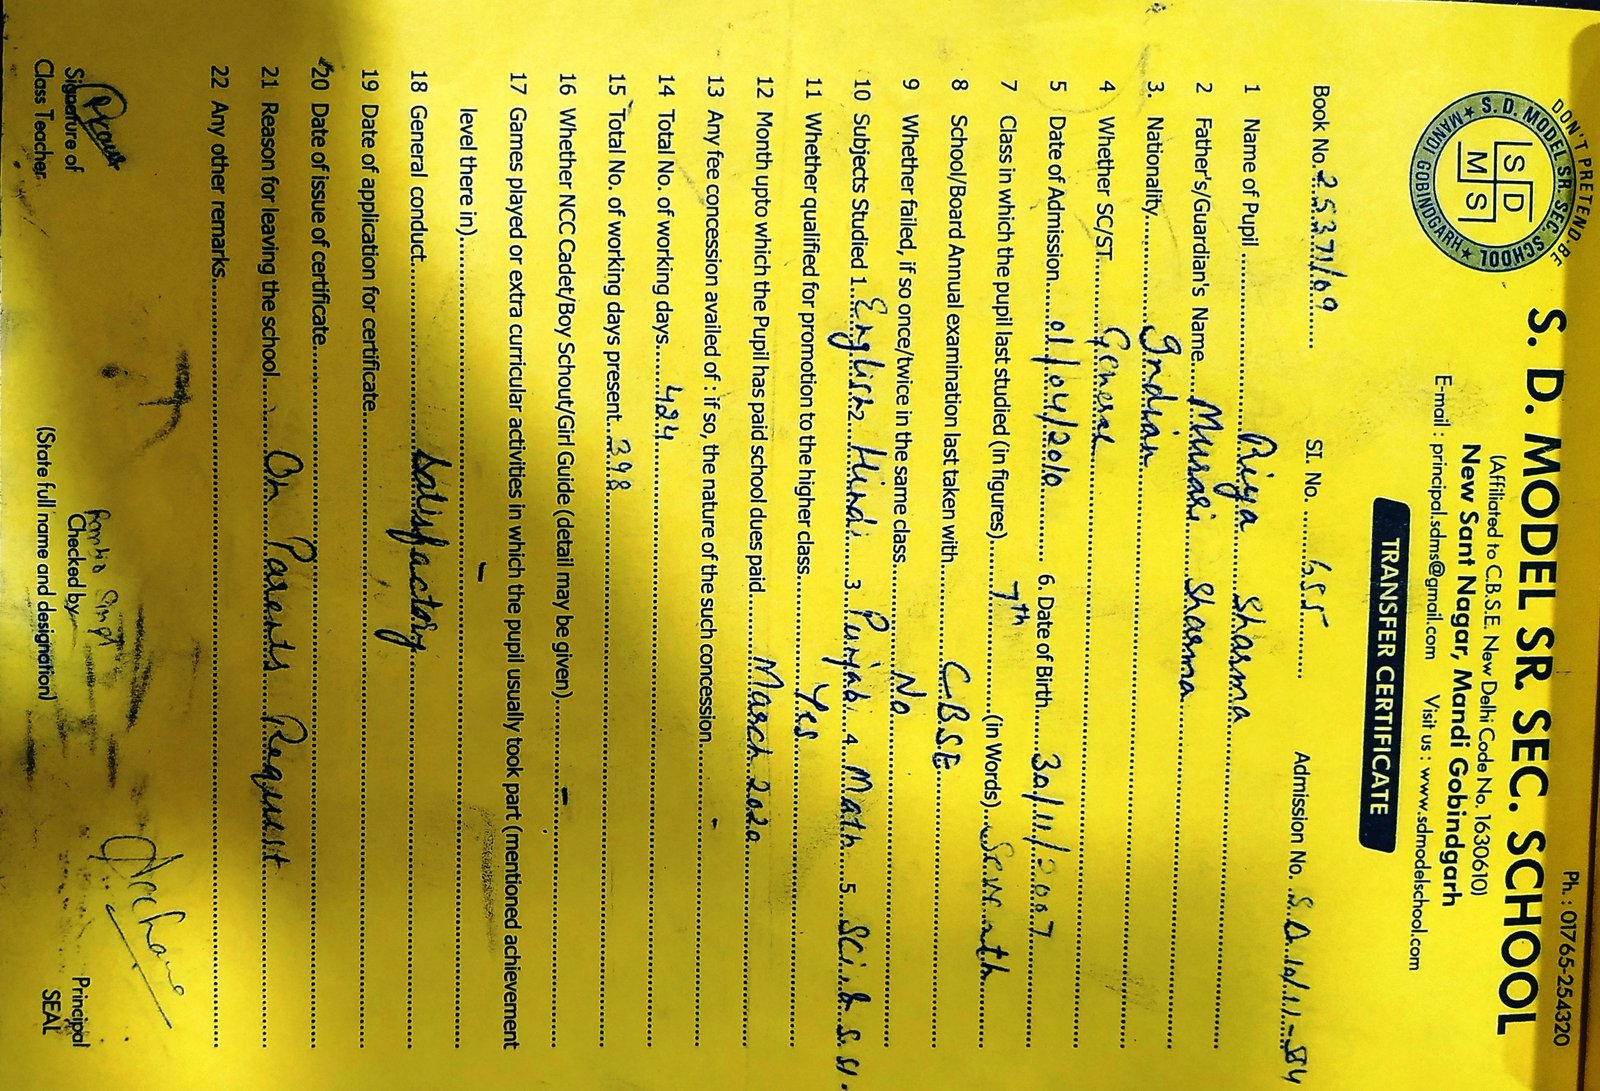 Ph. : 01765-254320
DON'T PRETEND-BE
S. D. MODEL SR. SEC. SCHOOL
★ MANDI GOBINDGARH ★
S D
M S
S. D. MODEL SR. SEC. SCHOOL
(Affiliated to C.B.S.E. New Delhi Code No. 1630610)
New Sant Nagar, Mandi Gobindgarh
E-mail : principal.sdms@gmail.com Visit us : www.sdmodelschool.com
TRANSFER CERTIFICATE
Book No. 25371/09 SI. No. 655 Admission No. S.D.10/11-84
1 Name of Pupil Riya Sharma
2 Father's/Guardian's Name Murari Sharma
3. Nationality Indian
4 Whether SC/ST General
5 Date of Admission 01/04/2010 6. Date of Birth 30/11/2007
7 Class in which the pupil last studied (in figures) 7th (in Words) Seventh
8 School/Board Annual examination last taken with CBSE
9 Whether failed, if so once/twice in the same class No
10 Subjects Studied 1. English 2 Hindi 3. Punjabi 4. Math 5. Sci. & S. St.
11 Whether qualified for promotion to the higher class. Yes
12 Month upto which the Pupil has paid school dues paid March 2020
13 Any fee concession availed of : if so, the nature of the such concession
14 Total No. of working days 424
15 Total No. of working days present 398
16 Whether NCC Cadet/Boy Schout/Girl Guide (detail may be given) -
17 Games played or extra curricular activities in which the pupil usually took part (mentioned achievement
level there in) -
18 General conduct Satisfactory
19 Date of application for certificate
20 Date of issue of certificate
21 Reason for leaving the school On Parents Request
22 Any other remarks
Archana
Signature of Checked by Principal
Class Teacher (State full name and designation) SEAL